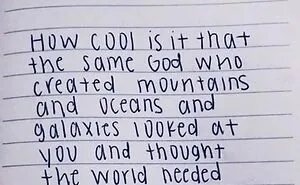 HOW COOl is it that
the same God who
created mountains
and oceans and
galaxies looked at
you and thought
the world needed